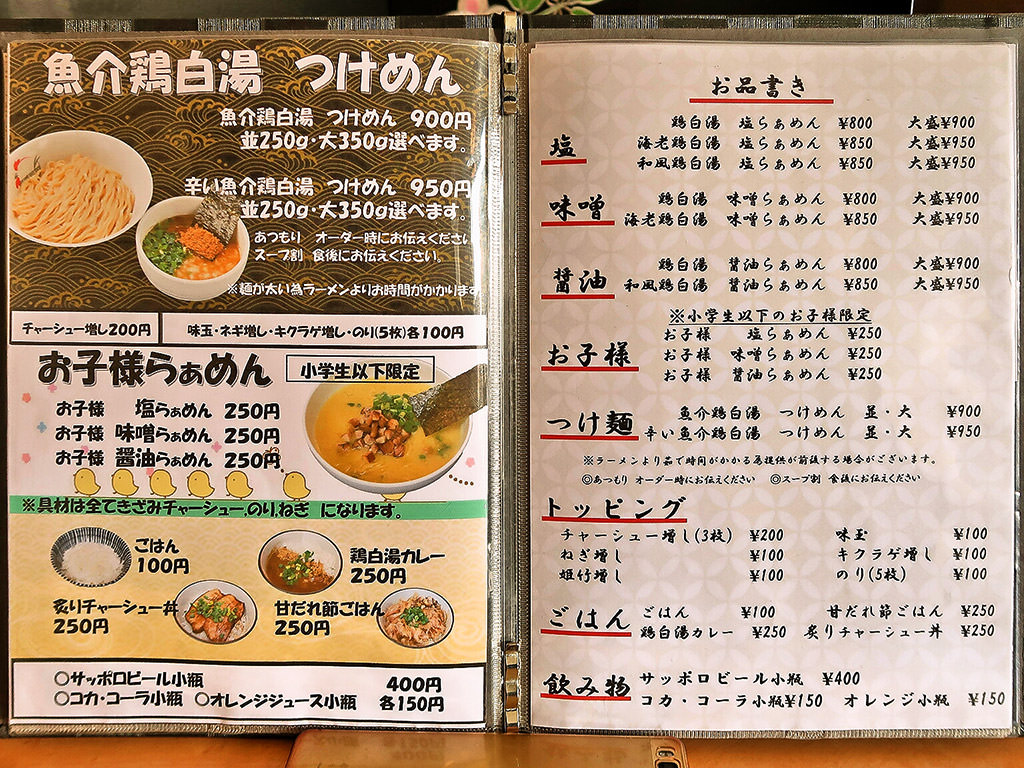 魚介鶏白湯 つけめん
魚介鶏白湯 つけめん 900円
並250g・大350g選べます。
辛い魚介鶏白湯 つけめん 950円
並250g・大350g選べます。
あつもり オーダー時にお伝えください
スープ割 食後にお伝えください。
※麺が太い為ラーメンよりお時間がかかります
チャーシュー増し200円
味玉・ネギ増し・キクラゲ増し・のり(5枚)各100円
お子様らぁめん 小学生以下限定
お子様 塩らぁめん 250円
お子様 味噌らぁめん 250円
お子様 醤油らぁめん 250円
※具材は全てきざみチャーシュー,のり,ねぎ になります。
ごはん
100円
鶏白湯カレー
250円
炙りチャーシュー丼
250円
甘だれ節ごはん
250円
○サッポロビール小瓶 400円
○コカ・コーラ小瓶 ○オレンジジュース小瓶 各150円
お品書き
塩
鶏白湯 塩らぁめん ¥800 大盛¥900
海老鶏白湯 塩らぁめん ¥850 大盛¥950
和風鶏白湯 塩らぁめん ¥850 大盛¥950
味噌
鶏白湯 味噌らぁめん ¥800 大盛¥900
海老鶏白湯 味噌らぁめん ¥850 大盛¥950
醤油
鶏白湯 醤油らぁめん ¥800 大盛¥900
和風鶏白湯 醤油らぁめん ¥850 大盛¥950
※小学生以下のお子様限定
お子様
お子様 塩らぁめん ¥250
お子様 味噌らぁめん ¥250
お子様 醤油らぁめん ¥250
つけ麺
魚介鶏白湯 つけめん 並・大 ¥900
辛い魚介鶏白湯 つけめん 並・大 ¥950
※ラーメンより茹で時間がかかる為提供が前後する場合がございます。
◎あつもり オーダー時にお伝えください ◎スープ割 食後にお伝えください
トッピング
チャーシュー増し(3枚) ¥200 味玉 ¥100
ねぎ増し ¥100 キクラゲ増し ¥100
姫竹増し ¥100 のり(5枚) ¥100
ごはん
ごはん ¥100 甘だれ節ごはん ¥250
鶏白湯カレー ¥250 炙りチャーシュー丼 ¥250
飲み物
サッポロビール小瓶 ¥400
コカ・コーラ小瓶¥150 オレンジ小瓶 ¥150